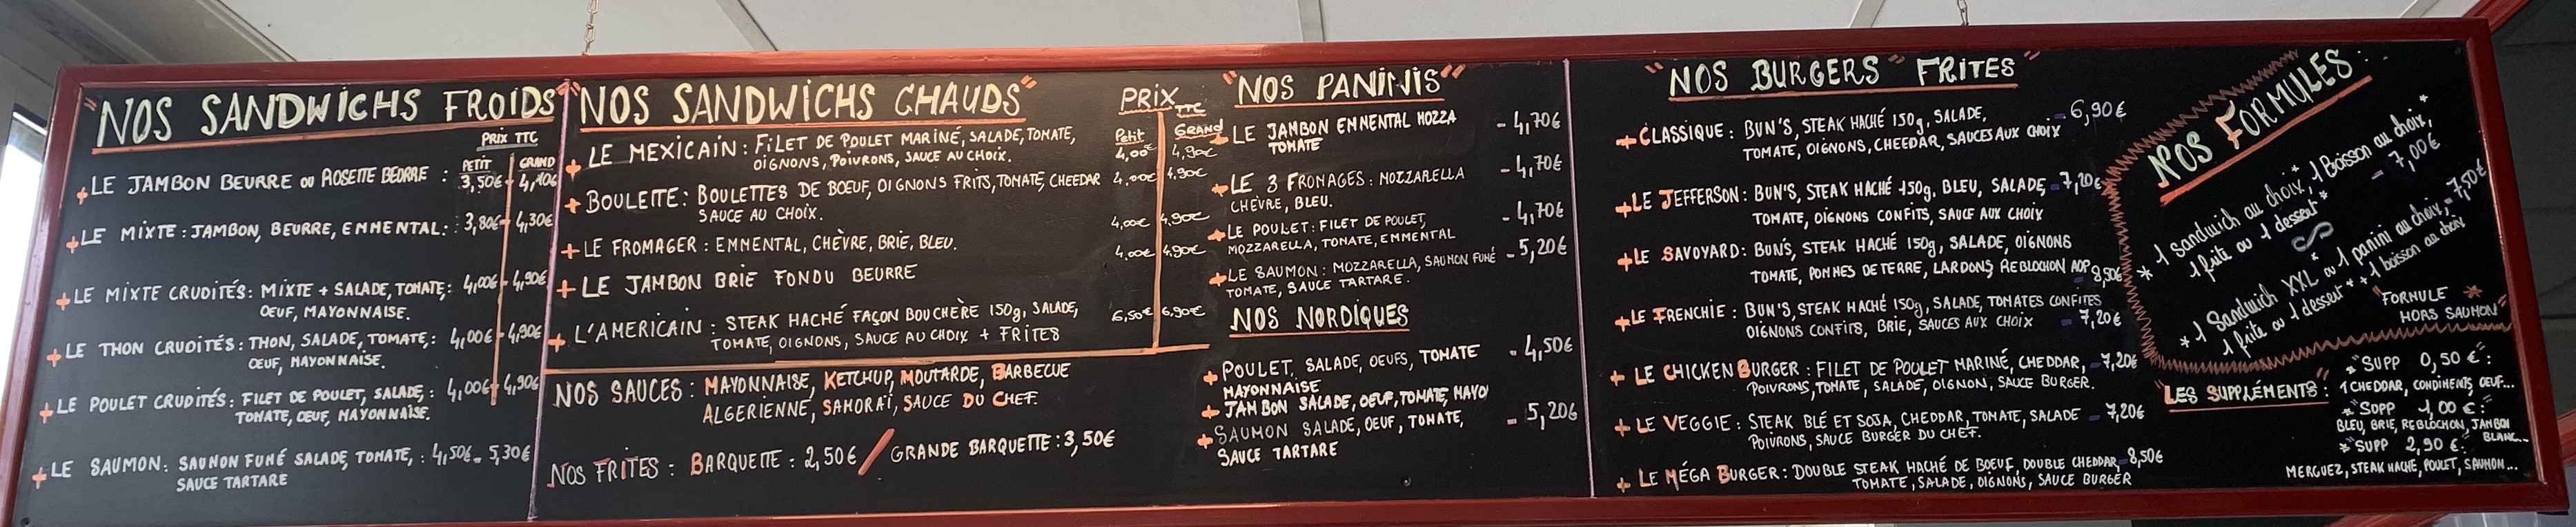 "NOS SANDWICHS FROIDS"
PRIX TTC
PETIT GRAND
+ LE JAMBON BEURRE OU ROSETTE BEURRE : 3,50€ 4,10€
+ LE MIXTE : JAMBON, BEURRE, EMMENTAL : 3,80€ 4,30€
+ LE MIXTE CRUDITÉS : MIXTE + SALADE, TOMATE, : 4,00€ 4,90€
OEUF, MAYONNAISE.
+ LE THON CRUDITÉS : THON, SALADE, TOMATE, : 4,00€ 4,90€
ŒUF, MAYONNAISE.
+ LE POULET CRUDITÉS : FILET DE POULET, SALADE, : 4,00€ 4,90€
TOMATE, ŒUF, MAYONNAISE.
+ LE SAUMON : SAUMON FUMÉ SALADE, TOMATE, : 4,50€ - 5,30€
SAUCE TARTARE
"NOS SANDWICHS CHAUDS"
PRIX TTC
Petit GRAND
+ LE MEXICAIN : FILET DE POULET MARINÉ, SALADE, TOMATE, 4,00€ 4,90€
OIGNONS, POIVRONS, SAUCE AU CHOIX.
+ BOULETTE : BOULETTES DE BOEUF, OIGNONS FRITS, TOMATE, CHEEDAR 4,00€ 4,90€
SAUCE AU CHOIX.
+ LE FROMAGER : EMMENTAL, CHÈVRE, BRIE, BLEU. 4,00€ 4,90€
+ LE JAMBON BRIE FONDU BEURRE 4,00€ 4,90€
+ L'AMERICAIN : STEAK HACHÉ FAÇON BOUCHÈRE 150g, SALADE, 6,50€ 6,90€
TOMATE, OIGNONS, SAUCE AU CHOIX + FRITES
NOS SAUCES : MAYONNAISE, KETCHUP, MOUTARDE, BARBECUE
ALGERIENNE, SAMORAÏ, SAUCE DU CHEF.
NOS FRITES : BARQUETTE : 2,50€ / GRANDE BARQUETTE : 3,50€
"NOS PANINIS"
+ LE JAMBON EMMENTAL MOZZA - 4,70€
TOMATE
+ LE 3 FROMAGES : MOZZARELLA - 4,70€
CHÈVRE, BLEU.
+ LE POULET : FILET DE POULET, - 4,70€
MOZZARELLA, TOMATE, EMMENTAL
+ LE SAUMON : MOZZARELLA, SAUMON FUMÉ - 5,20€
TOMATE, SAUCE TARTARE.
NOS NORDIQUES
+ POULET, SALADE, OEUFS, TOMATE - 4,50€
MAYONNAISE
+ JAMBON SALADE, OEUF, TOMATE, MAYO
+ SAUMON SALADE, OEUF, TOMATE, - 5,20€
SAUCE TARTARE
"NOS BURGERS" FRITES"
+ CLASSIQUE : BUN'S, STEAK HACHÉ 150g, SALADE, - 6,90€
TOMATE, OIGNONS, CHEEDAR, SAUCES AUX CHOIX
+ LE JEFFERSON : BUN'S, STEAK HACHÉ 150g, BLEU, SALADE, - 7,20€
TOMATE, OIGNONS CONFITS, SAUCE AUX CHOIX
+ LE SAVOYARD : BUN'S, STEAK HACHÉ 150g, SALADE, OIGNONS
TOMATE, POMMES DE TERRE, LARDONS, REBLOCHON AOP 8,50€
+ LE FRENCHIE : BUN'S, STEAK HACHÉ 150g, SALADE, TOMATES CONFITES
OIGNONS CONFITS, BRIE, SAUCES AUX CHOIX - 7,20€
+ LE CHICKEN BURGER : FILET DE POULET MARINÉ, CHEDDAR, - 7,20€
POIVRONS, TOMATE, SALADE, OIGNON, SAUCE BURGER.
+ LE VEGGIE : STEAK BLÉ ET SOJA, CHEDDAR, TOMATE, SALADE - 7,20€
POIVRONS, SAUCE BURGER DU CHEF.
+ LE MÉGA BURGER : DOUBLE STEAK HACHÉ DE BOEUF, DOUBLE CHEDDAR, - 8,50€
TOMATE, SALADE, OIGNONS, SAUCE BURGER
NOS FORMULES :
* 1 Sandwich au choix, 1 Boisson au choix, *
1 frite ou 1 dessert * - 7,00€
* 1 Sandwich XXL * ou 1 panini au choix, - 7,50€
1 frite ou 1 dessert * * 1 boisson au choix
"FORMULE *
HORS SAUMON"
"LES SUPPLÉMENTS" :
* "SUPP 0,50 €" :
1 CHEDDAR, CONDIMENTS, OEUF...
* "SUPP 1,00 € :"
BLEU, BRIE, REBLOCHON, JAMBON
BLANC...
* "SUPP 2,90 € :"
MERGUEZ, STEAK HACHÉ, POULET, SAUMON...